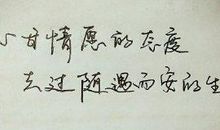 甘情愿的态度
去过随遇而安的生